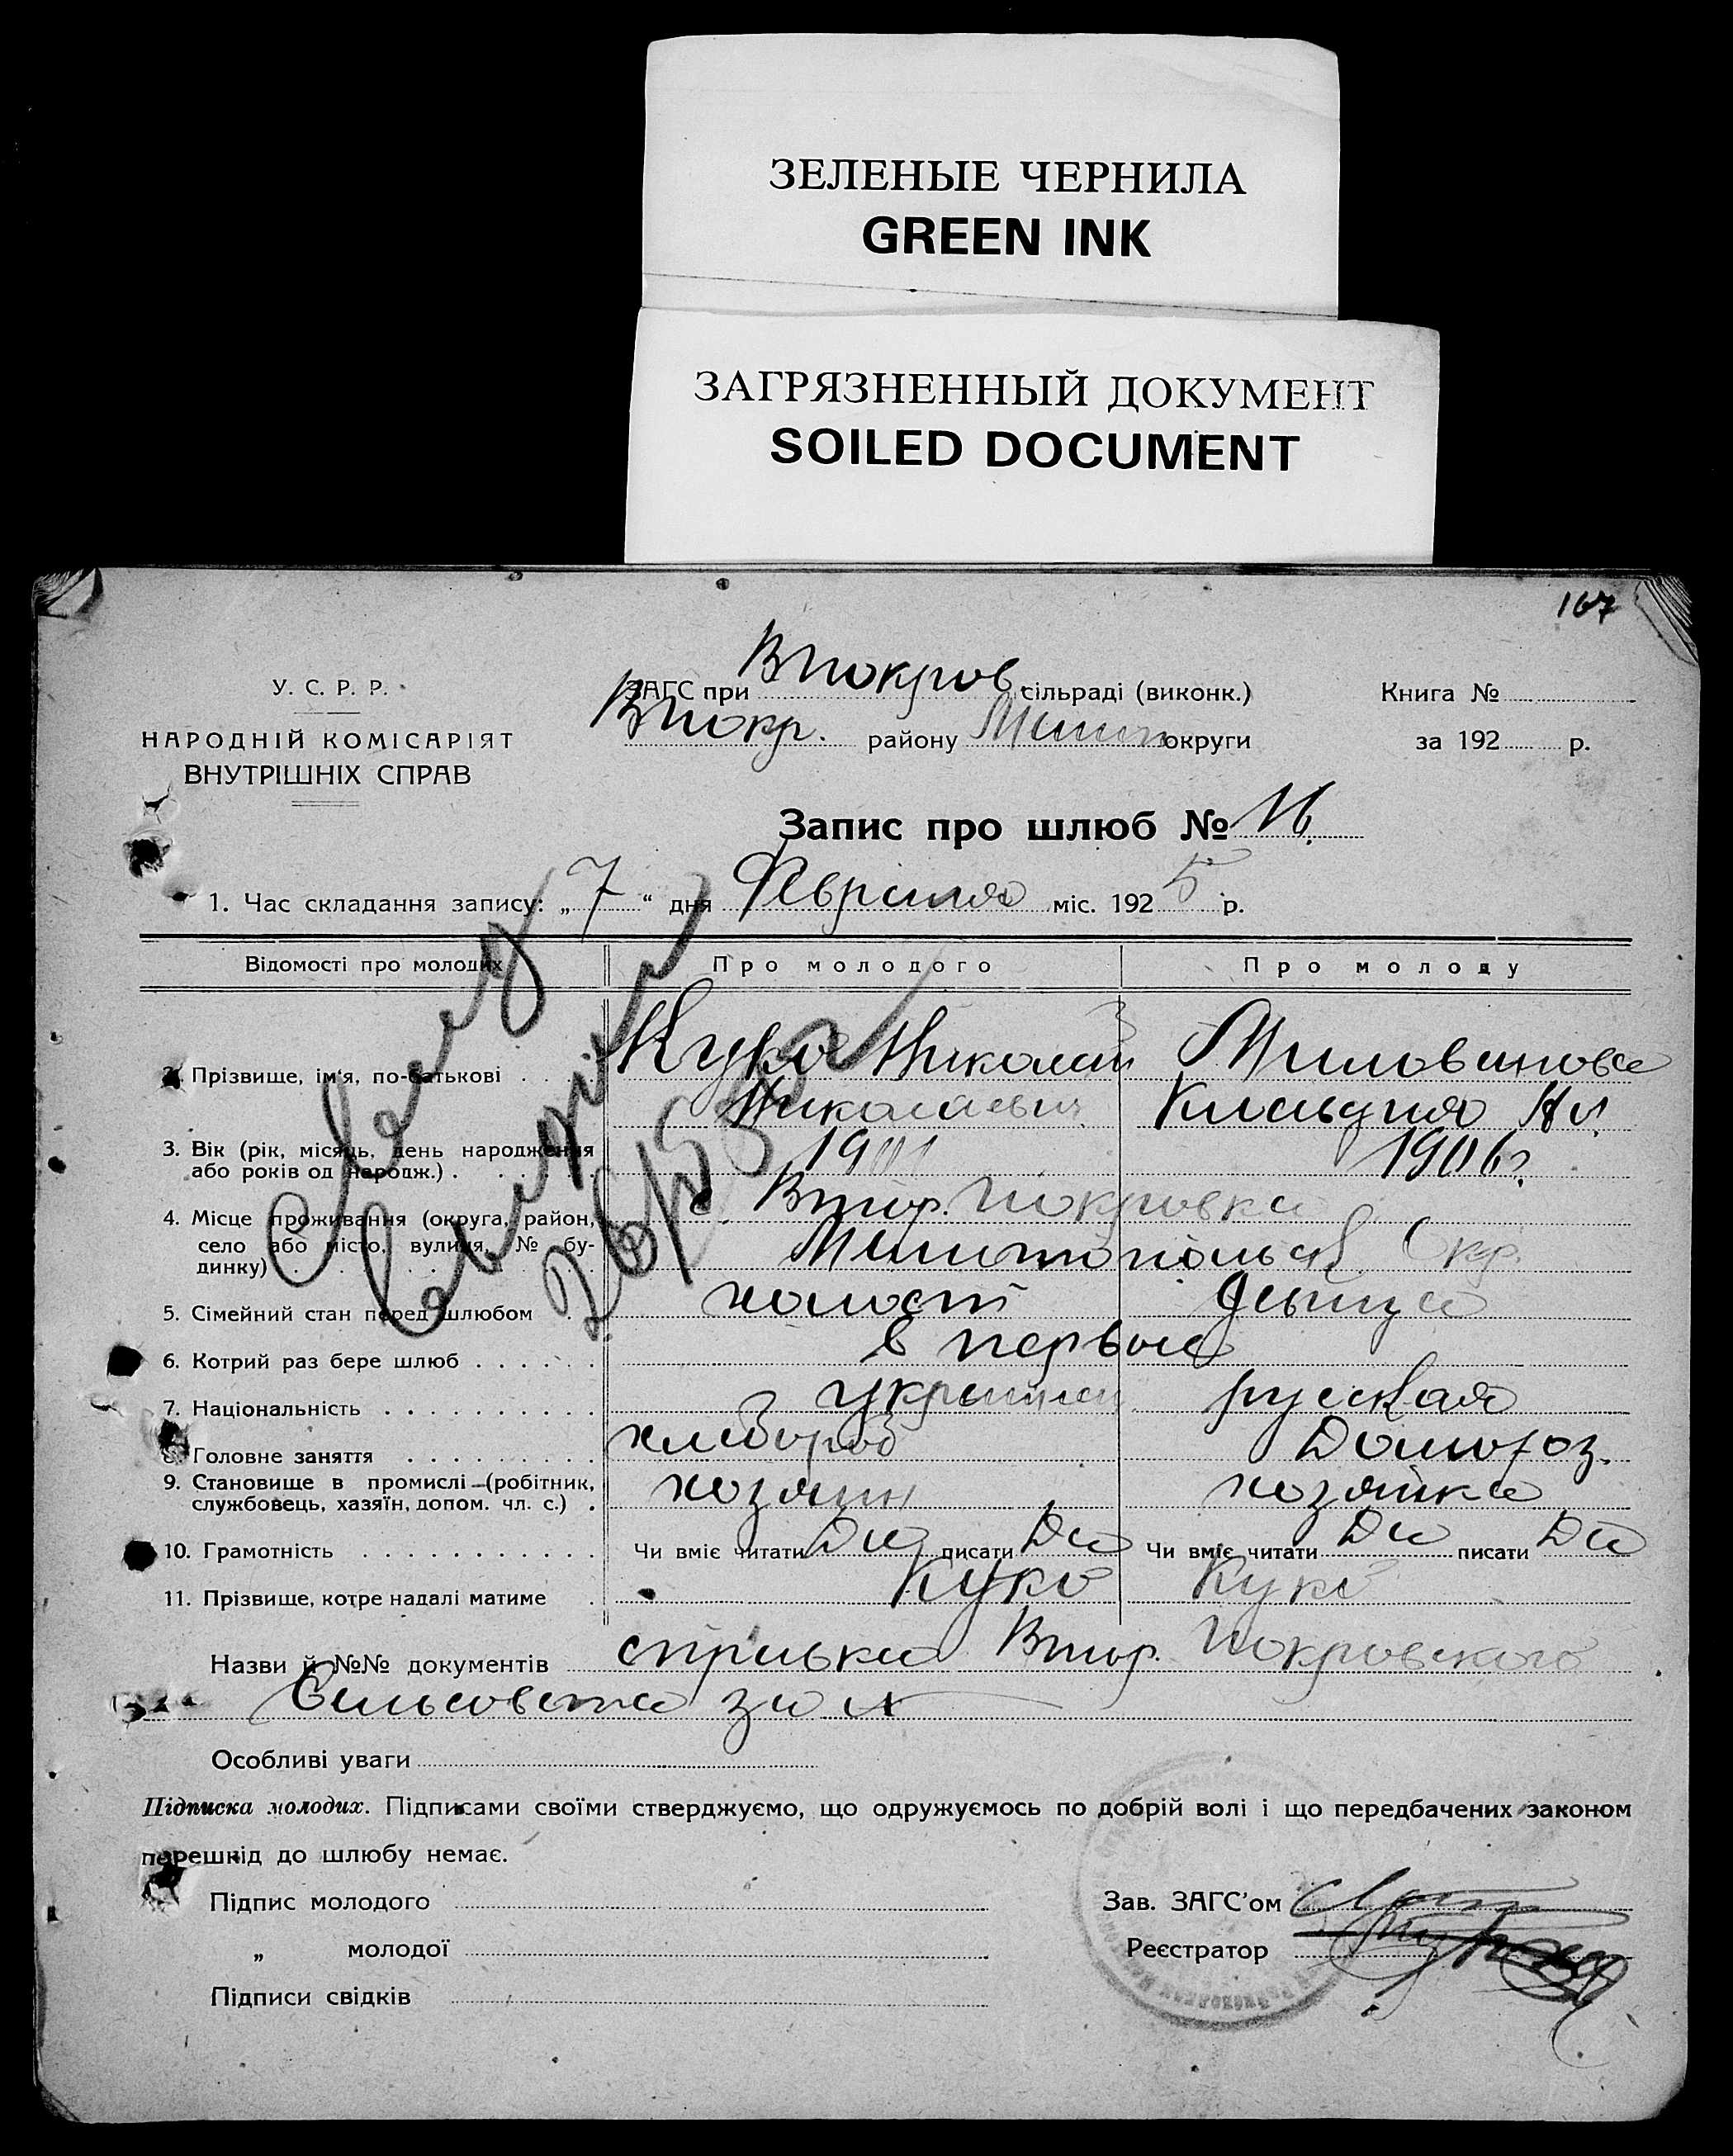 ЗЕЛЕНЫЕ ЧЕРНИЛА
GREEN INK
ЗАГРЯЗНЕННЫЙ ДОКУМЕНТ
SOILED DOCUMENT
167
У. С. Р. Р.
НАРОДНІЙ КОМІСАРІЯТ
ВНУТРІШНІХ СПРАВ
ЗАГС при ВПокров сільраді (виконк.)
ВПокр. району Мелит округи
Книга №
за 192 р.
Запис про шлюб № 16.
1. Час складання запису: „7“ дня Февраля міс. 1925 р.
Відомості про молодих Про молодого Про молоду
2. Прізвище, ім'я, по-батькові Кука Николай Милованова
Николаевич Клавдия Ал.
3. Вік (рік, місяць, день народження 1901 1906
або років од народж.)
4. Місце проживання (округа, район, с. Втор. Покровка
село або місто, вулиця, № бу- Мелитопольск. Окр.
динку)
5. Сімейний стан перед шлюбом холост девица
6. Котрий раз бере шлюб в первые
7. Національність украинец русская
8. Головне заняття хлебороб Домохоз.
9. Становище в промислі (робітник, хозяин хозяйка
службовець, хазяїн, допом. чл. с.)
10. Грамотність Чи вміє читати Да писати Да Чи вміє читати Да писати Да
11. Прізвище, котре надалі матиме Кука Кука
Назви й №№ документів справка Втор. Покровского
Сельсовета за №
Особливі уваги
Підписка молодих. Підписами своїми стверджуємо, що одружуємось по добрій волі і що передбачених законом
перешкід до шлюбу немає.
Підпис молодого
„ молодої
Підписи свідків
Зав. ЗАГС'ом
Реєстратор